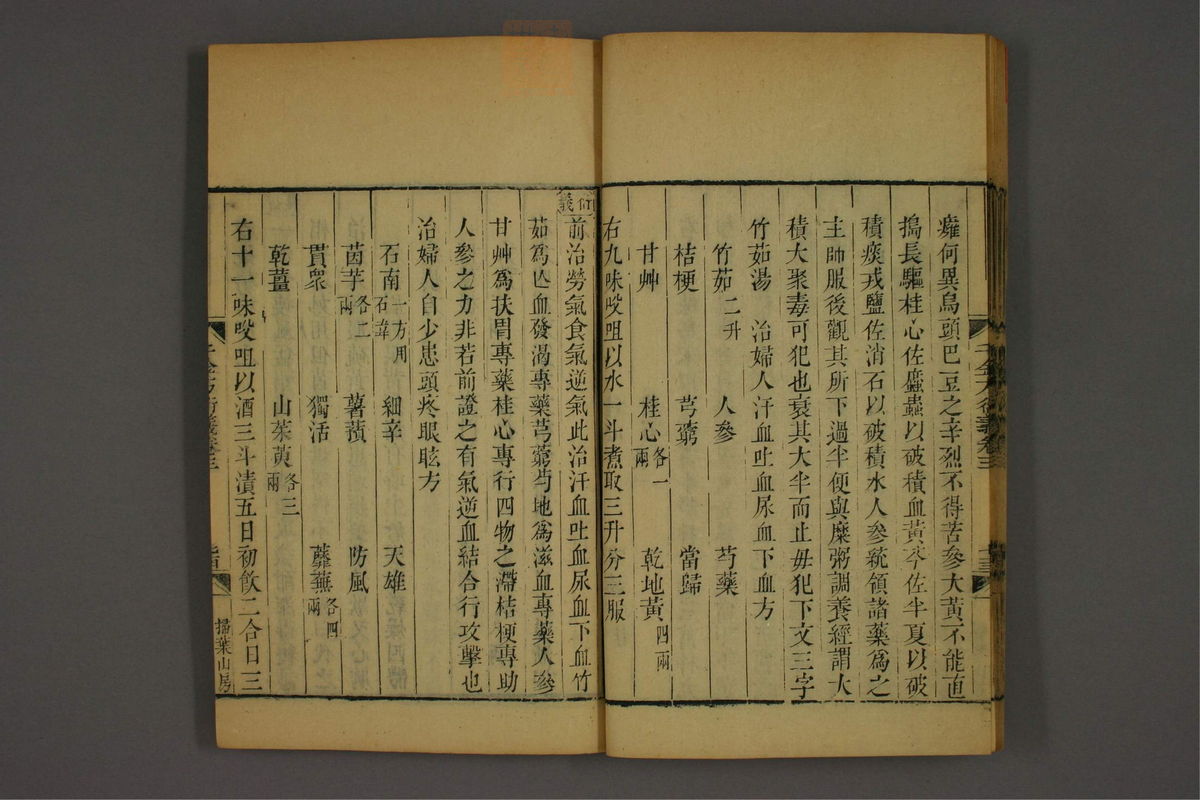 癰何異烏頭巴豆之辛烈不得苦參大黃不能直
搗長驅桂心佐䗪蟲以破積血黃芩佐半夏以破
積痰戎鹽佐消石以破積水人參統領諸藥爲之
主帥服後觀其所下過半便與糜粥調養經謂大
積大聚毒可犯也衰其大半而止毋犯下文三字
竹茹湯 治婦人汗血吐血尿血下血方
竹茹二升 人參 芍藥
桔梗 芎藭 當歸
甘艸 桂心各一兩 乾地黃四兩
右九味㕮咀以水一斗煮取三升分三服
衍義
前治勞氣食氣逆氣此治汗血吐血尿血下血竹
茹爲亾血發渴專藥芎藭芍地爲滋血專藥人參
甘艸爲扶胃專藥桂心專行四物之滯桔梗專助
人參之力非若前證之有氣逆血結合行攻擊也
治婦人自少患頭疼眼眩方
石南一方用石韋 細辛 天雄
茵芋各二兩 薯蕷 防風
貫衆 獨活 蘼蕪各四兩
乾薑 山茱萸各三兩
右十一味㕮咀以酒三斗漬五日初飲二合日三
千金方衍義卷三
掃葉山房